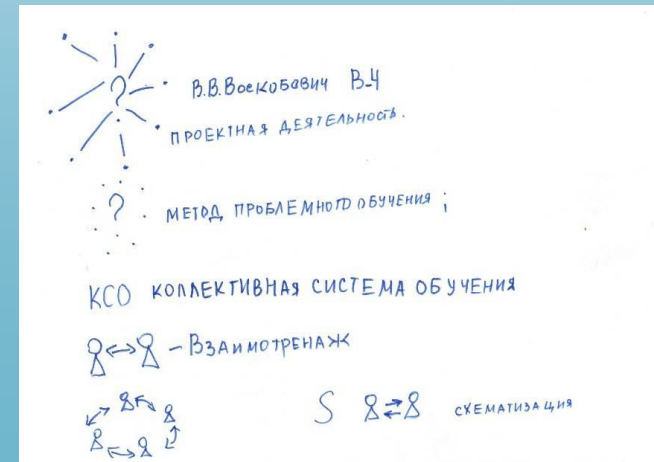 ?
В.В.Воскобович В-Ч
ПРОЕКТНАЯ ДЕЯТЕЛЬНОСТЬ.
? МЕТОД ПРОБЛЕМНОГО ОБУЧЕНИЯ ;
КСО КОЛЛЕКТИВНАЯ СИСТЕМА ОБУЧЕНИЯ
– ВЗАИМОТРЕНАЖ
S СХЕМАТИЗАЦИЯ